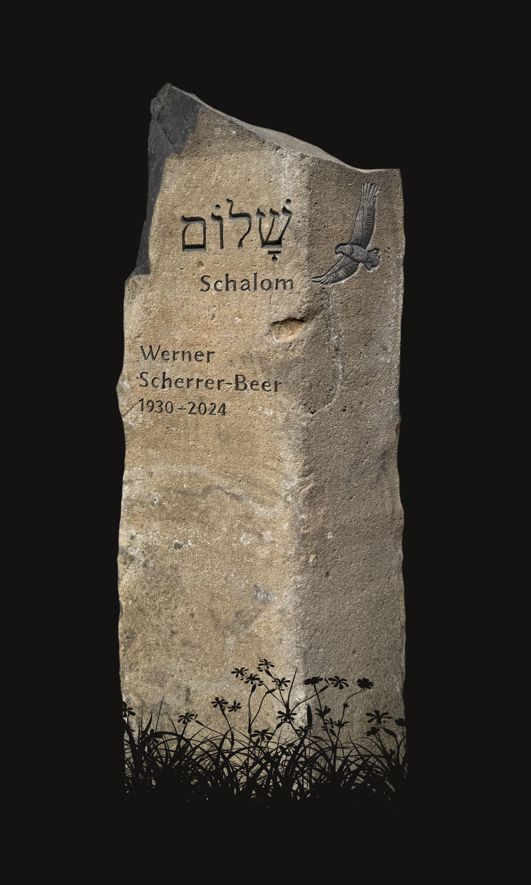 שָׁלוֹם
Schalom
Werner
Scherrer-Beer
1930-2024